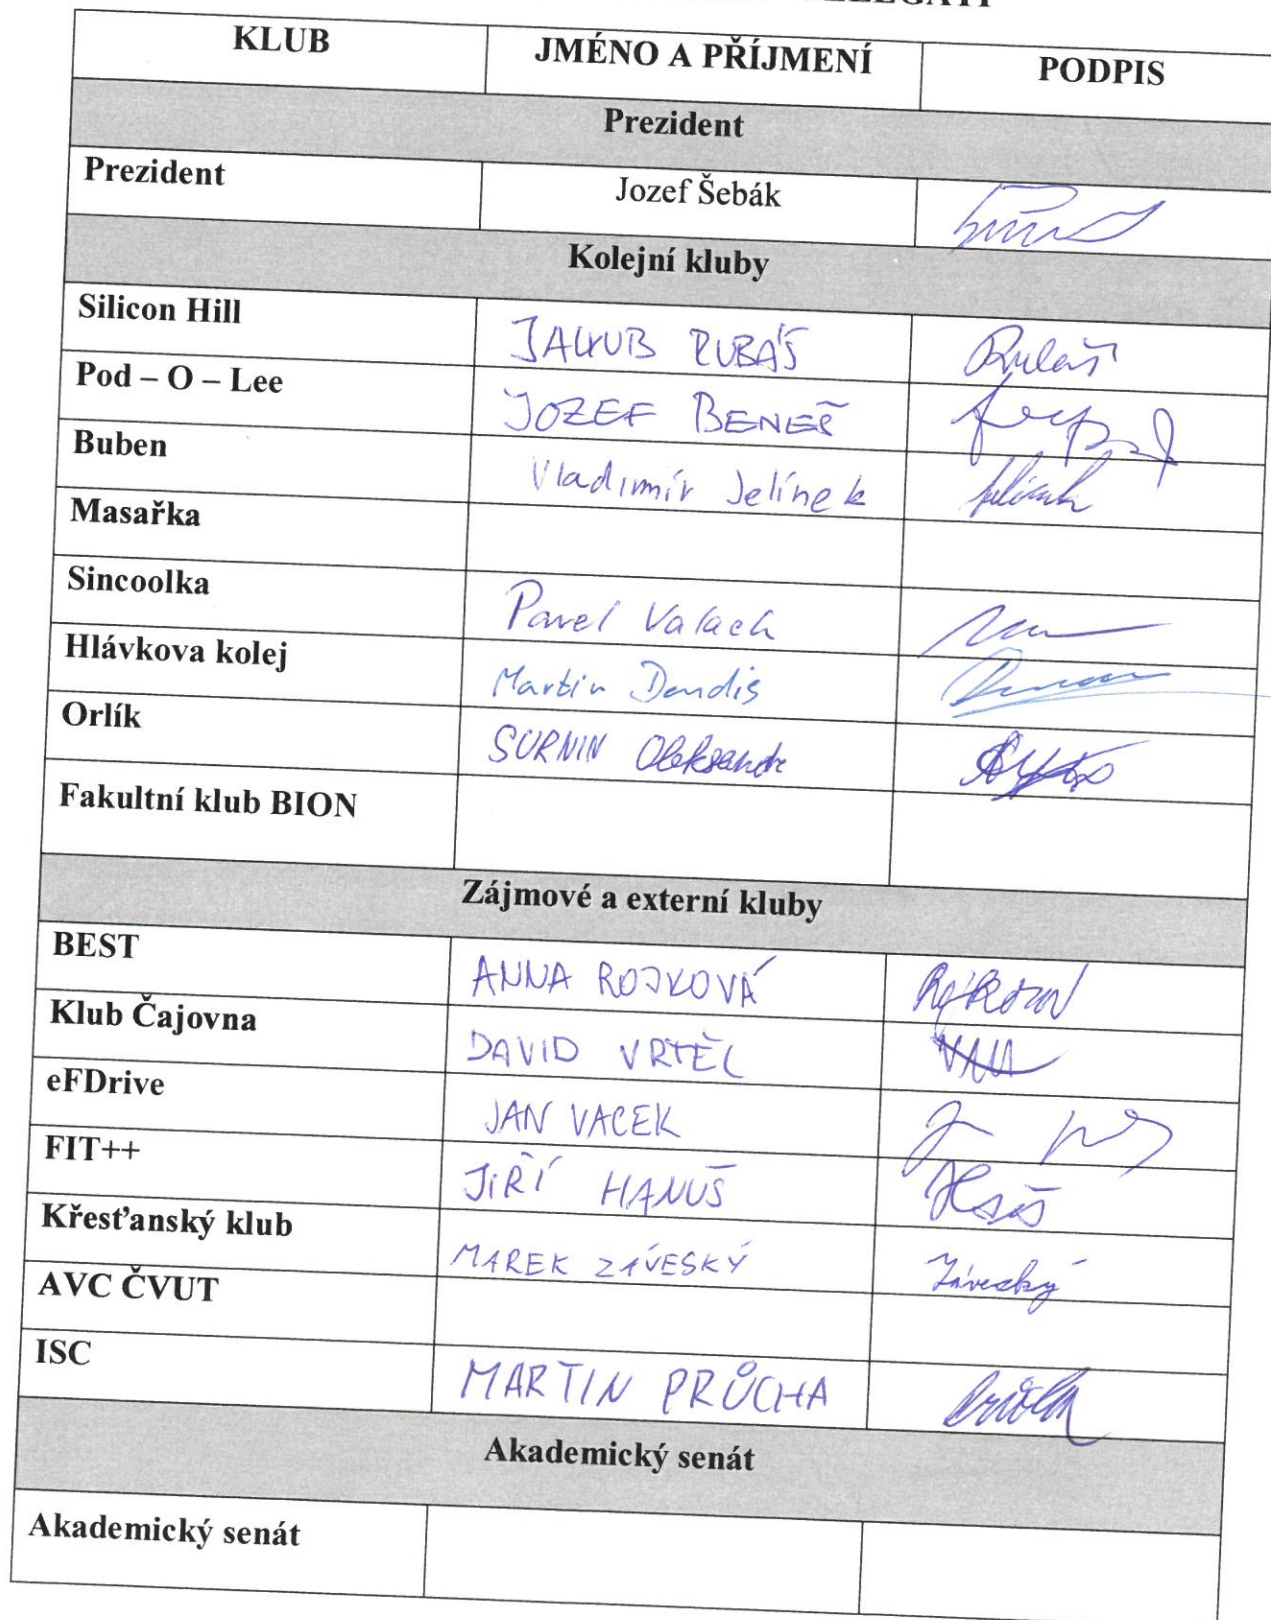 KLUB JMÉNO A PŘÍJMENÍ PODPIS
Prezident
Prezident Jozef Šebák
Kolejní kluby
Silicon Hill JAKUB RUBÁŠ Rubáš
Pod – O – Lee JOZEF BENEŠ
Buben Vladimír Jelínek Jelínek
Masařka
Sincoolka Pavel Valach
Hlávkova kolej Martin Dendis
Orlík SURNIN Oleksandr
Fakultní klub BION
Zájmové a externí kluby
BEST ANNA ROJKOVÁ Rojková
Klub Čajovna DAVID VRTĚL
eFDrive JAN VACEK
FIT++ JIŘÍ HANUŠ
Křesťanský klub MAREK ZÁVESKÝ Záveský
AVC ČVUT
ISC MARTIN PRŮCHA
Akademický senát
Akademický senát